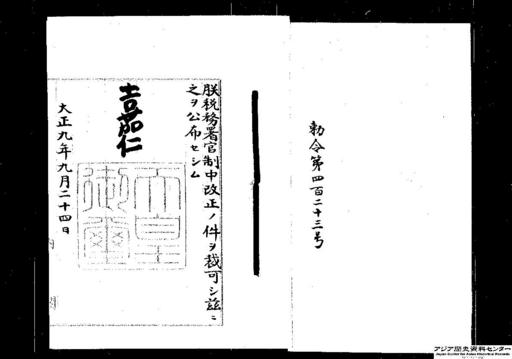 勅令第四百二十三号
朕税務署官制中改正ノ件ヲ裁可シ茲ニ
之ヲ公布セシム
嘉仁
天皇御璽
大正九年九月二十四日
アジア歴史資料センター
Japan Center for Asian Historical Records